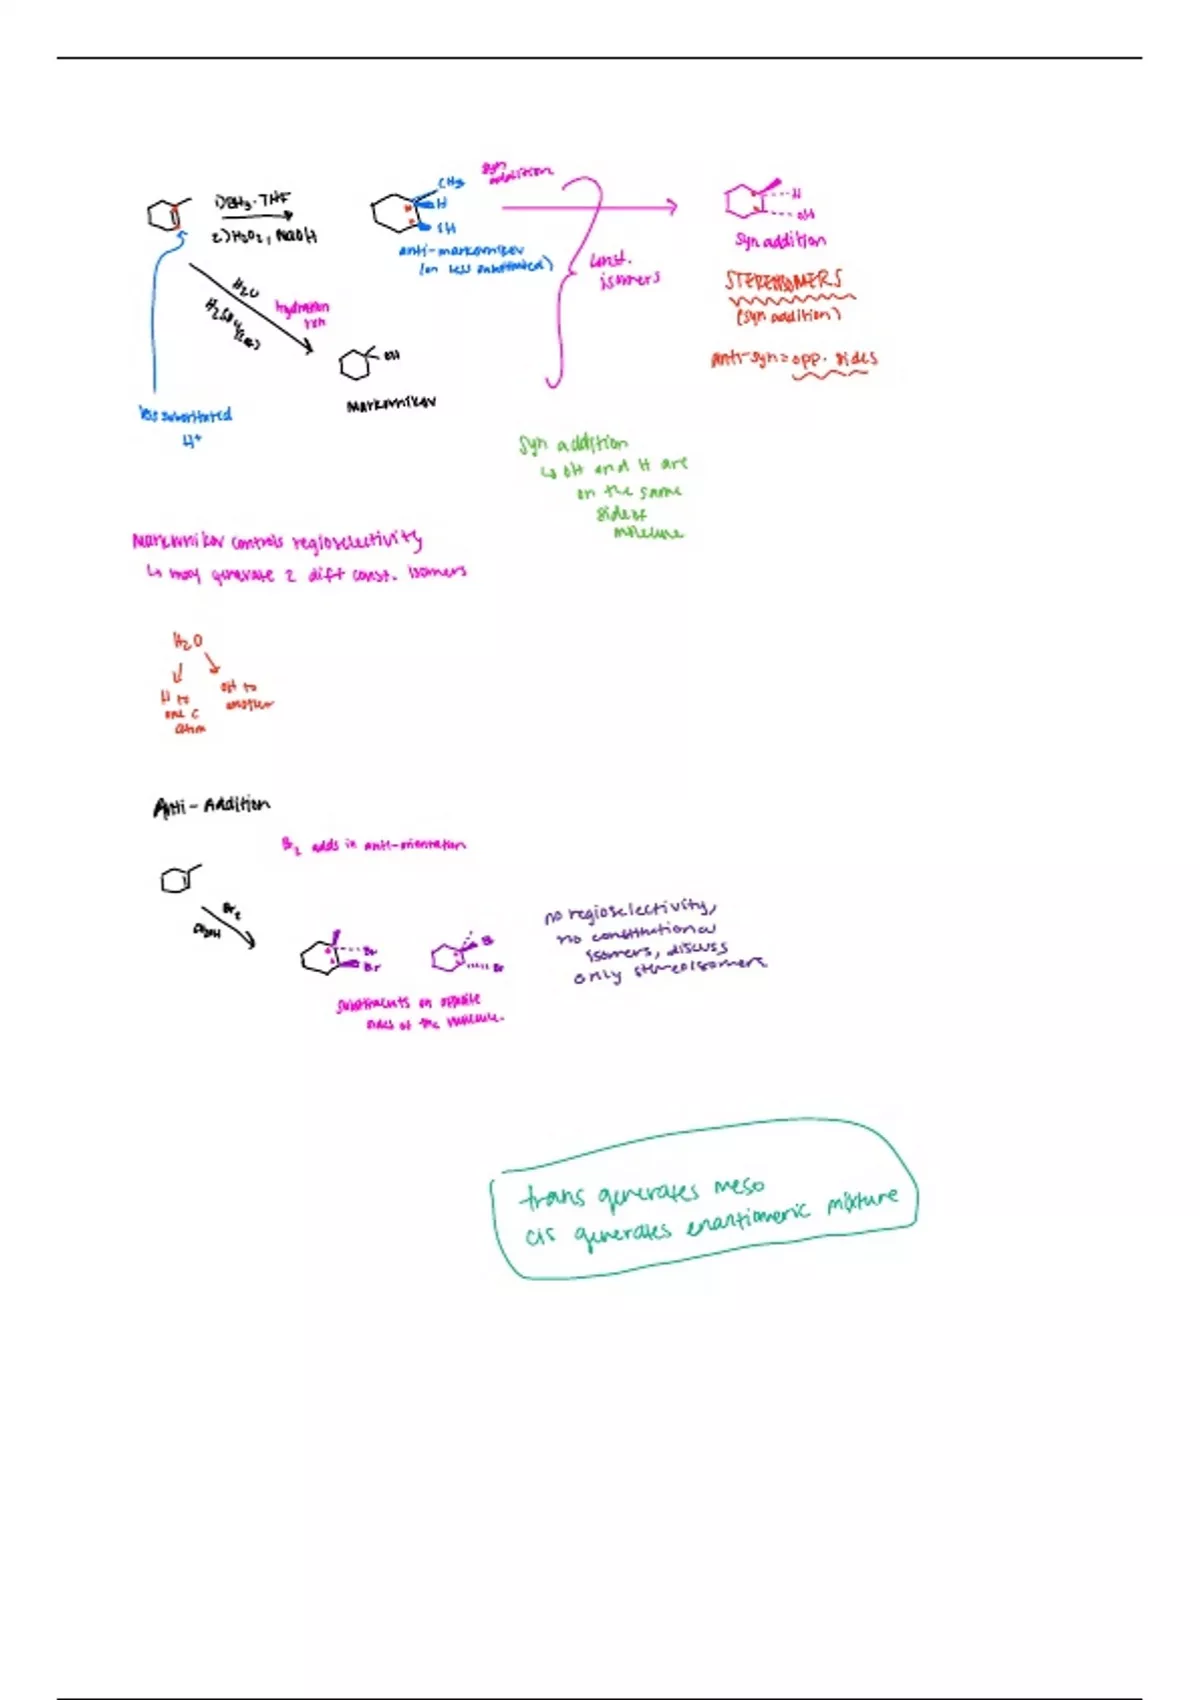 1) BH₃·THF
2) H₂O₂, NaOH
CH₃
H
anti-markovnikov
(on less substituted)
syn
addition
H
OH
syn addition
const.
isomers
STEREOISOMERS
(syn addition)
anti-syn = opp. sides
H₂O
H₂SO₄
hydration
rxn
OH
Markovnikov
less substituted
H⁺
syn addition
↳ OH and H are
on the same
side of
molecule
Markovnikov controls regioselectivity
↳ may generate 2 diff const. isomers
H₂O
H to
one C
atom
OH to
another
Anti-Addition
Br₂ adds in anti-orientation
Br₂
Br
Br
Br
Br
substituents on opposite
sides of the molecule.
no regioselectivity,
no constitutional
isomers, discuss
only stereoisomers
trans generates meso
cis generates enantiomeric mixture